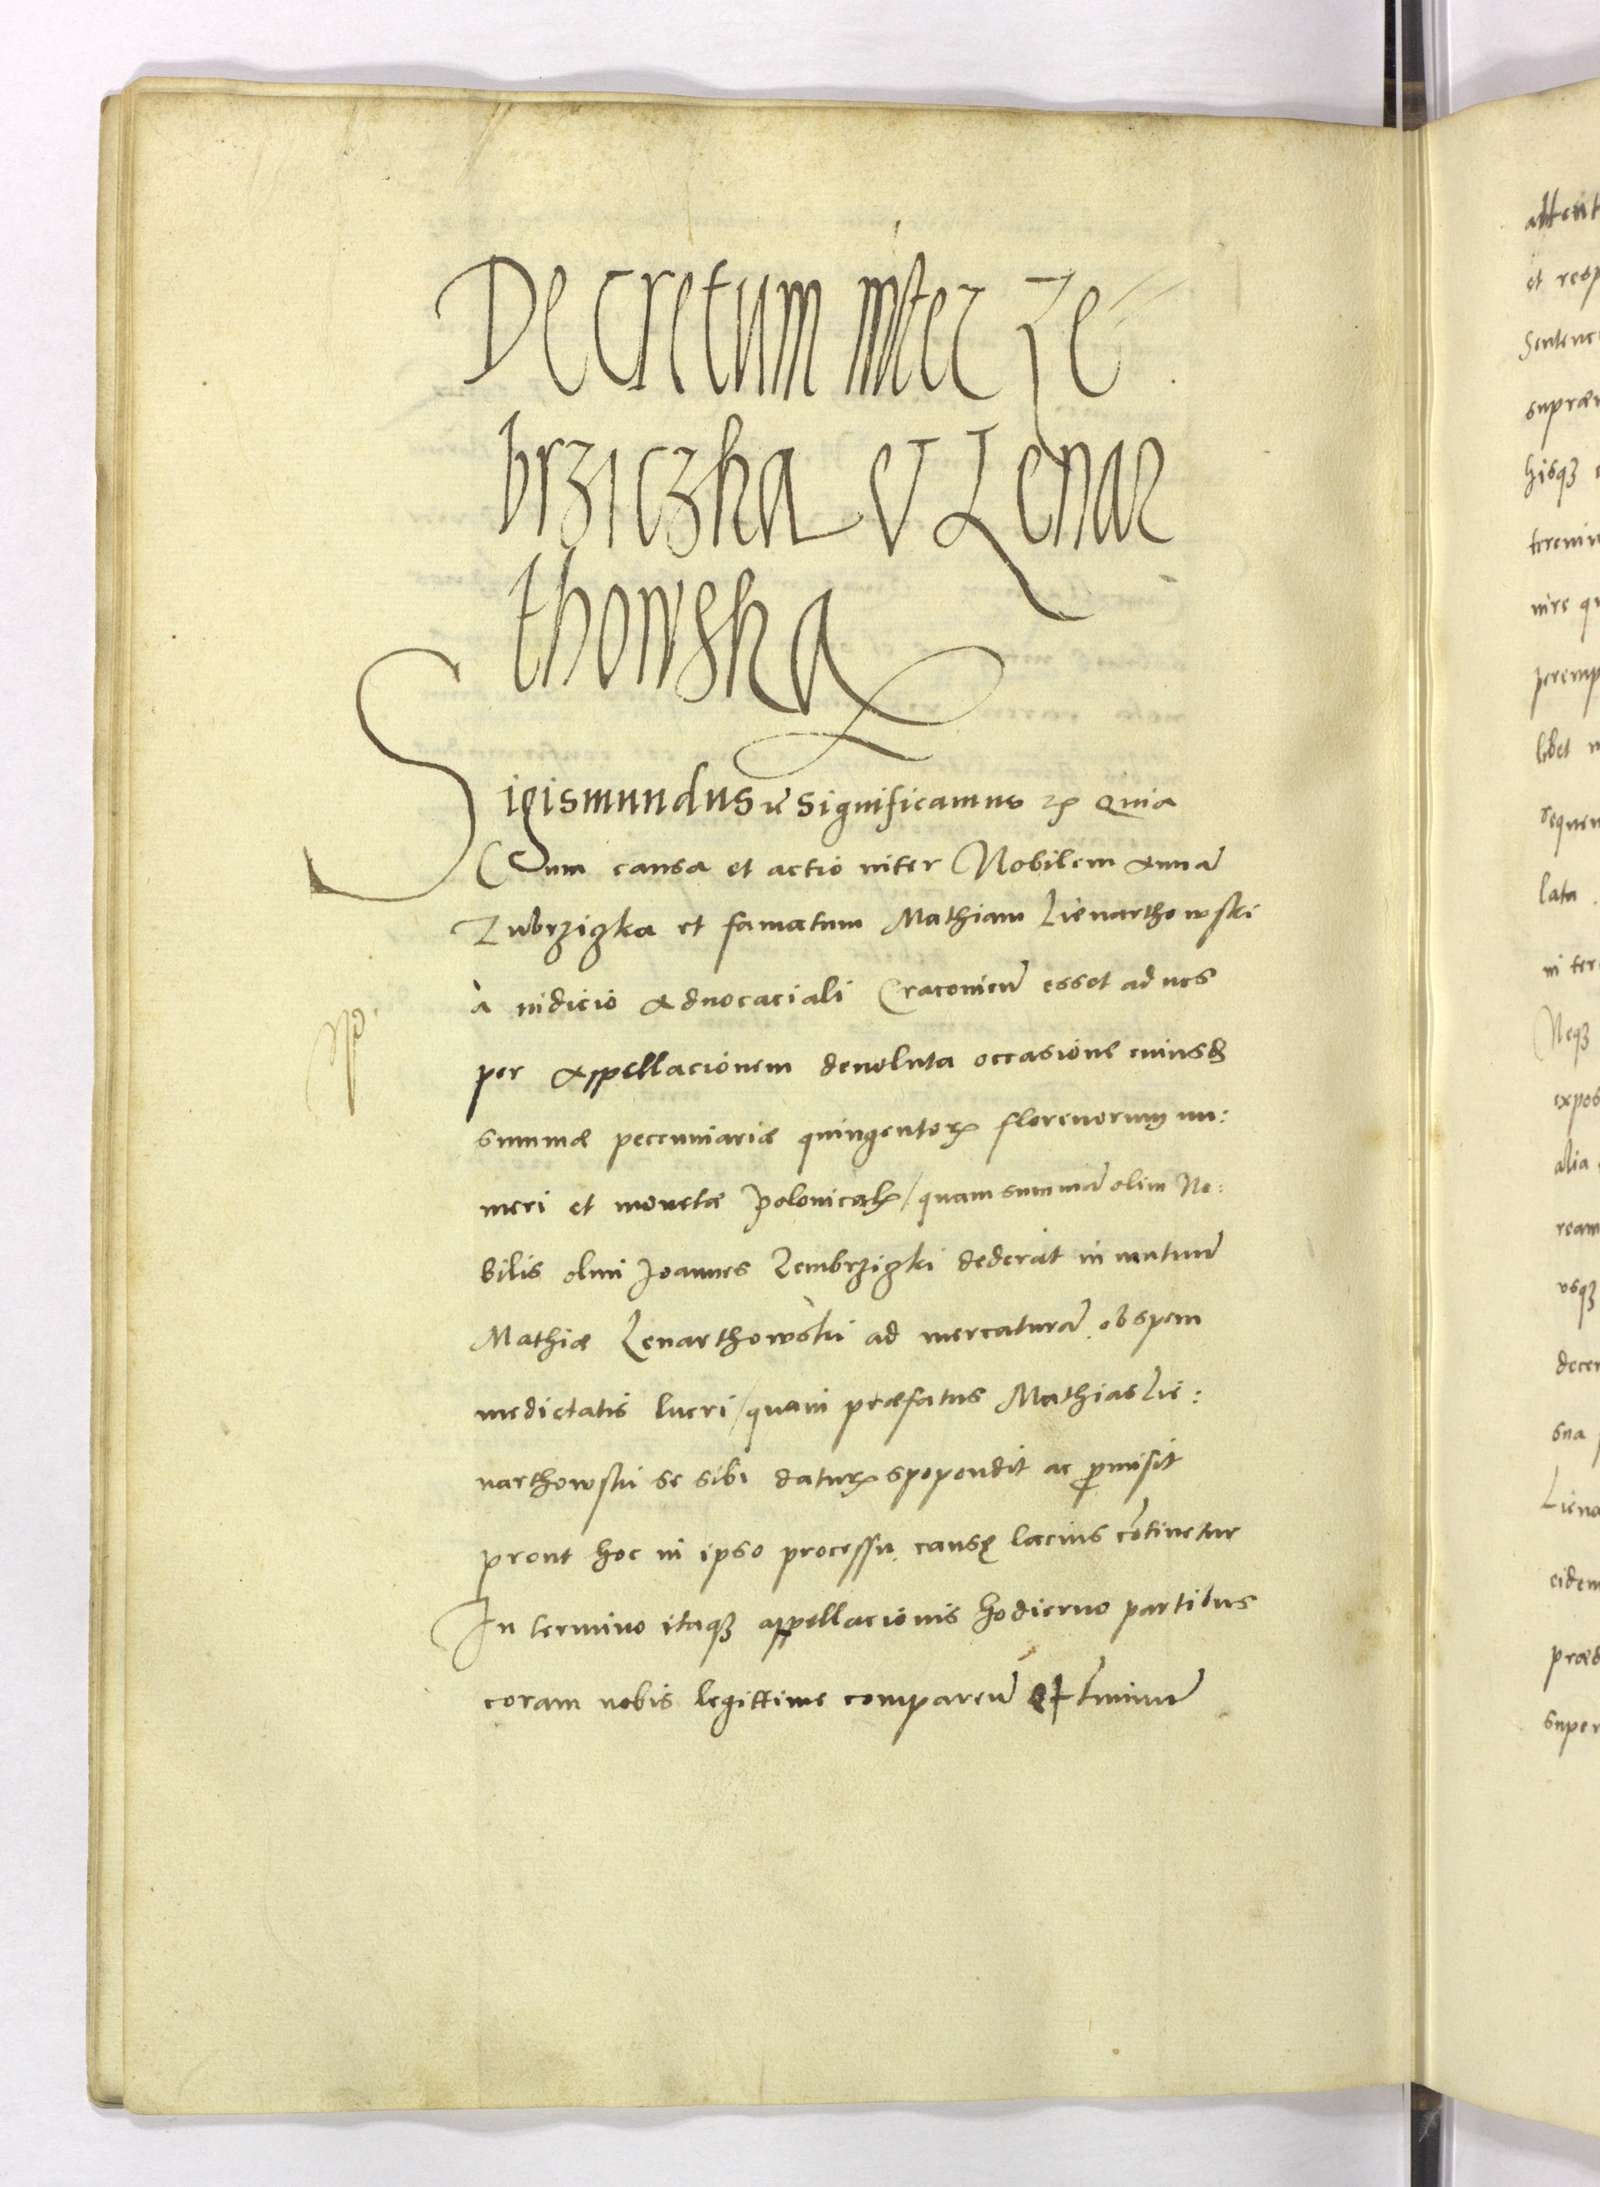 Decretum inter Ze=
brziczka et Lenar
thowska
Sigismundus etc significamus etc Quia
Cum causa et actio inter Nobilem Annā
Zubrziczka et famatum Mathiam Lienarthowski
à iudicio Aduocaciali Cracouieñ esset ad nos
per Appellacionem deuoluta occasione cuiusd
summæ pecuniariæ quingentoꝝ florenorum nu:
meri et monetæ Polonicalꝫ / quam summā olim No:
bilis olim Joannes Zembrziczki dederat in mutuū
Mathiæ Lenarthowski ad mercaturā ob spem
medietatis lucri / quam præfatus Mathias Lie:
narthowski se sibi daturꝝ spopondit ac ꝓmisit
prout hoc in ipso processu causę lacius cōtinetur
In termino itaqꝫ appellacionis hodierno partibus
coram nobis legittime compareñ et t̄minū
attent
et resp
Sentenc
hisqꝫ
peremp
libet
sequen
lata
in ter
Neqꝫ
expos
alia
ream
vsqꝫ
decer
sua
Liena
eidem
super